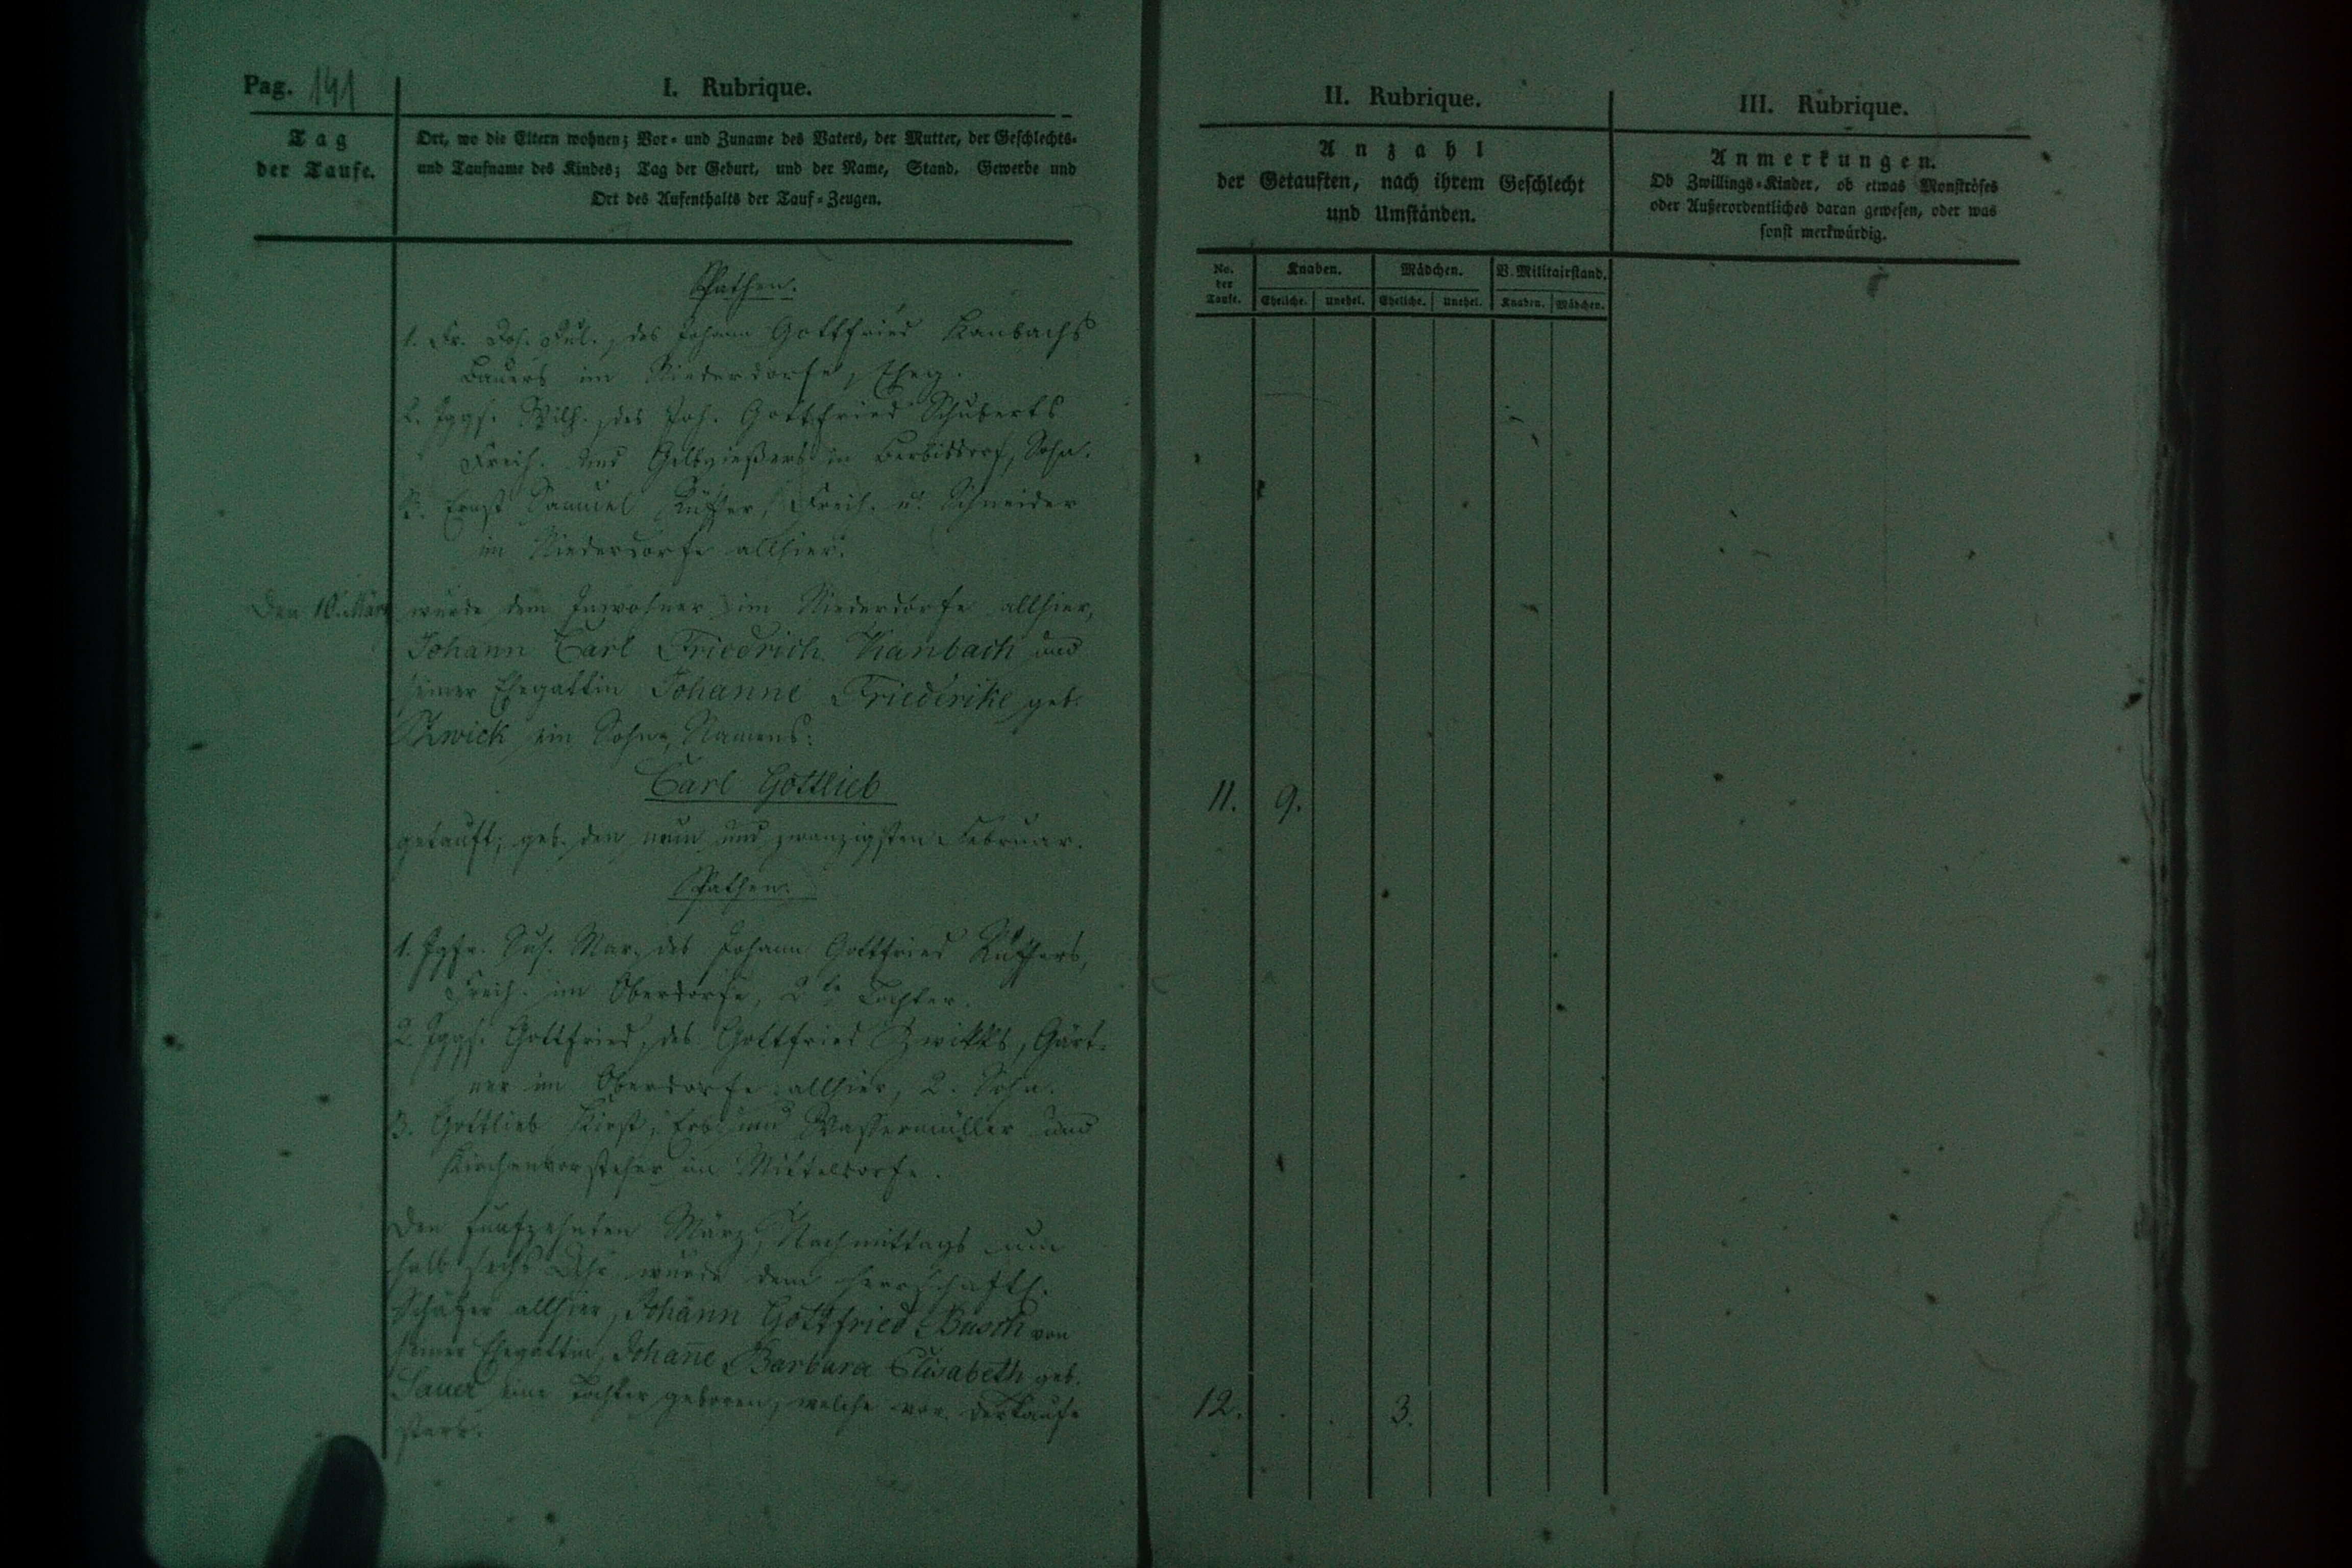 Pag. 141
I. Rubrique.
Tag
der Taufe.
Ort, wo die Eltern wohnen; Vor- und Zuname des Vaters, der Mutter, der Geschlechts-
und Taufname des Kindes; Tag der Geburt, und der Name, Stand, Gewerbe und
Ort des Aufenthalts der Tauf-Zeugen.
Pathen.
1. Fr. Joh. Jul., des Johann Gottfried Kanbachs
Bauers im Niederdorfe, Eheg.
2. Jggs. Wilh., des Joh. Gottfried Schuberts
Freih. und Gelbgießers in Berbisdorf, Sohn.
3. Ernst Samuel Küffer, Freih. u. Schneider
im Niederdorfe allhier.
Den 10. März wurde dem Inwohner im Niederdorfe allhier,
Johann Carl Friedrich Kanbach und
seiner Ehegattin Johanne Friederike geb.
Zwick ein Sohn, Namens:
Carl Gottlieb
getauft; geb. den neun und zwanzigsten Februar.
Pathen.
1. Jgfr. Sus. Mar., des Johann Gottfried Küffers,
Freih. im Oberdorfe, 2te Tochter.
2. Jggs. Gottfried, des Gottfried Zwicks, Gärt-
ner im Oberdorfe allhier, 2. Sohn.
3. Gottlieb Hirst, Erb- und Wassermüller und
Kirchenvorsteher im Mitteldorfe.
Den funfzehnten März, Nachmittags um
halb sechs Uhr wurde dem herrschaftl.
Schäfer allhier, Johann Gottfried Busch von
seiner Ehegattin, Johañe Barbara Elisabeth geb.
Sauer eine Tochter geboren, welche vor der Taufe
starb.
II. Rubrique.
Anzahl
der Getauften, nach ihrem Geschlecht
und Umständen.
No. der Taufe.
Knaben. Mädchen. V. Militairstand.
Eheliche. unehel. Eheliche. unehel. Knaben. Mädchen.
11. 9.
12. . . 3.
III. Rubrique.
Anmerkungen.
Ob Zwillings-Kinder, ob etwas Monströses
oder Außerordentliches daran gewesen, oder was
sonst merkwürdig.